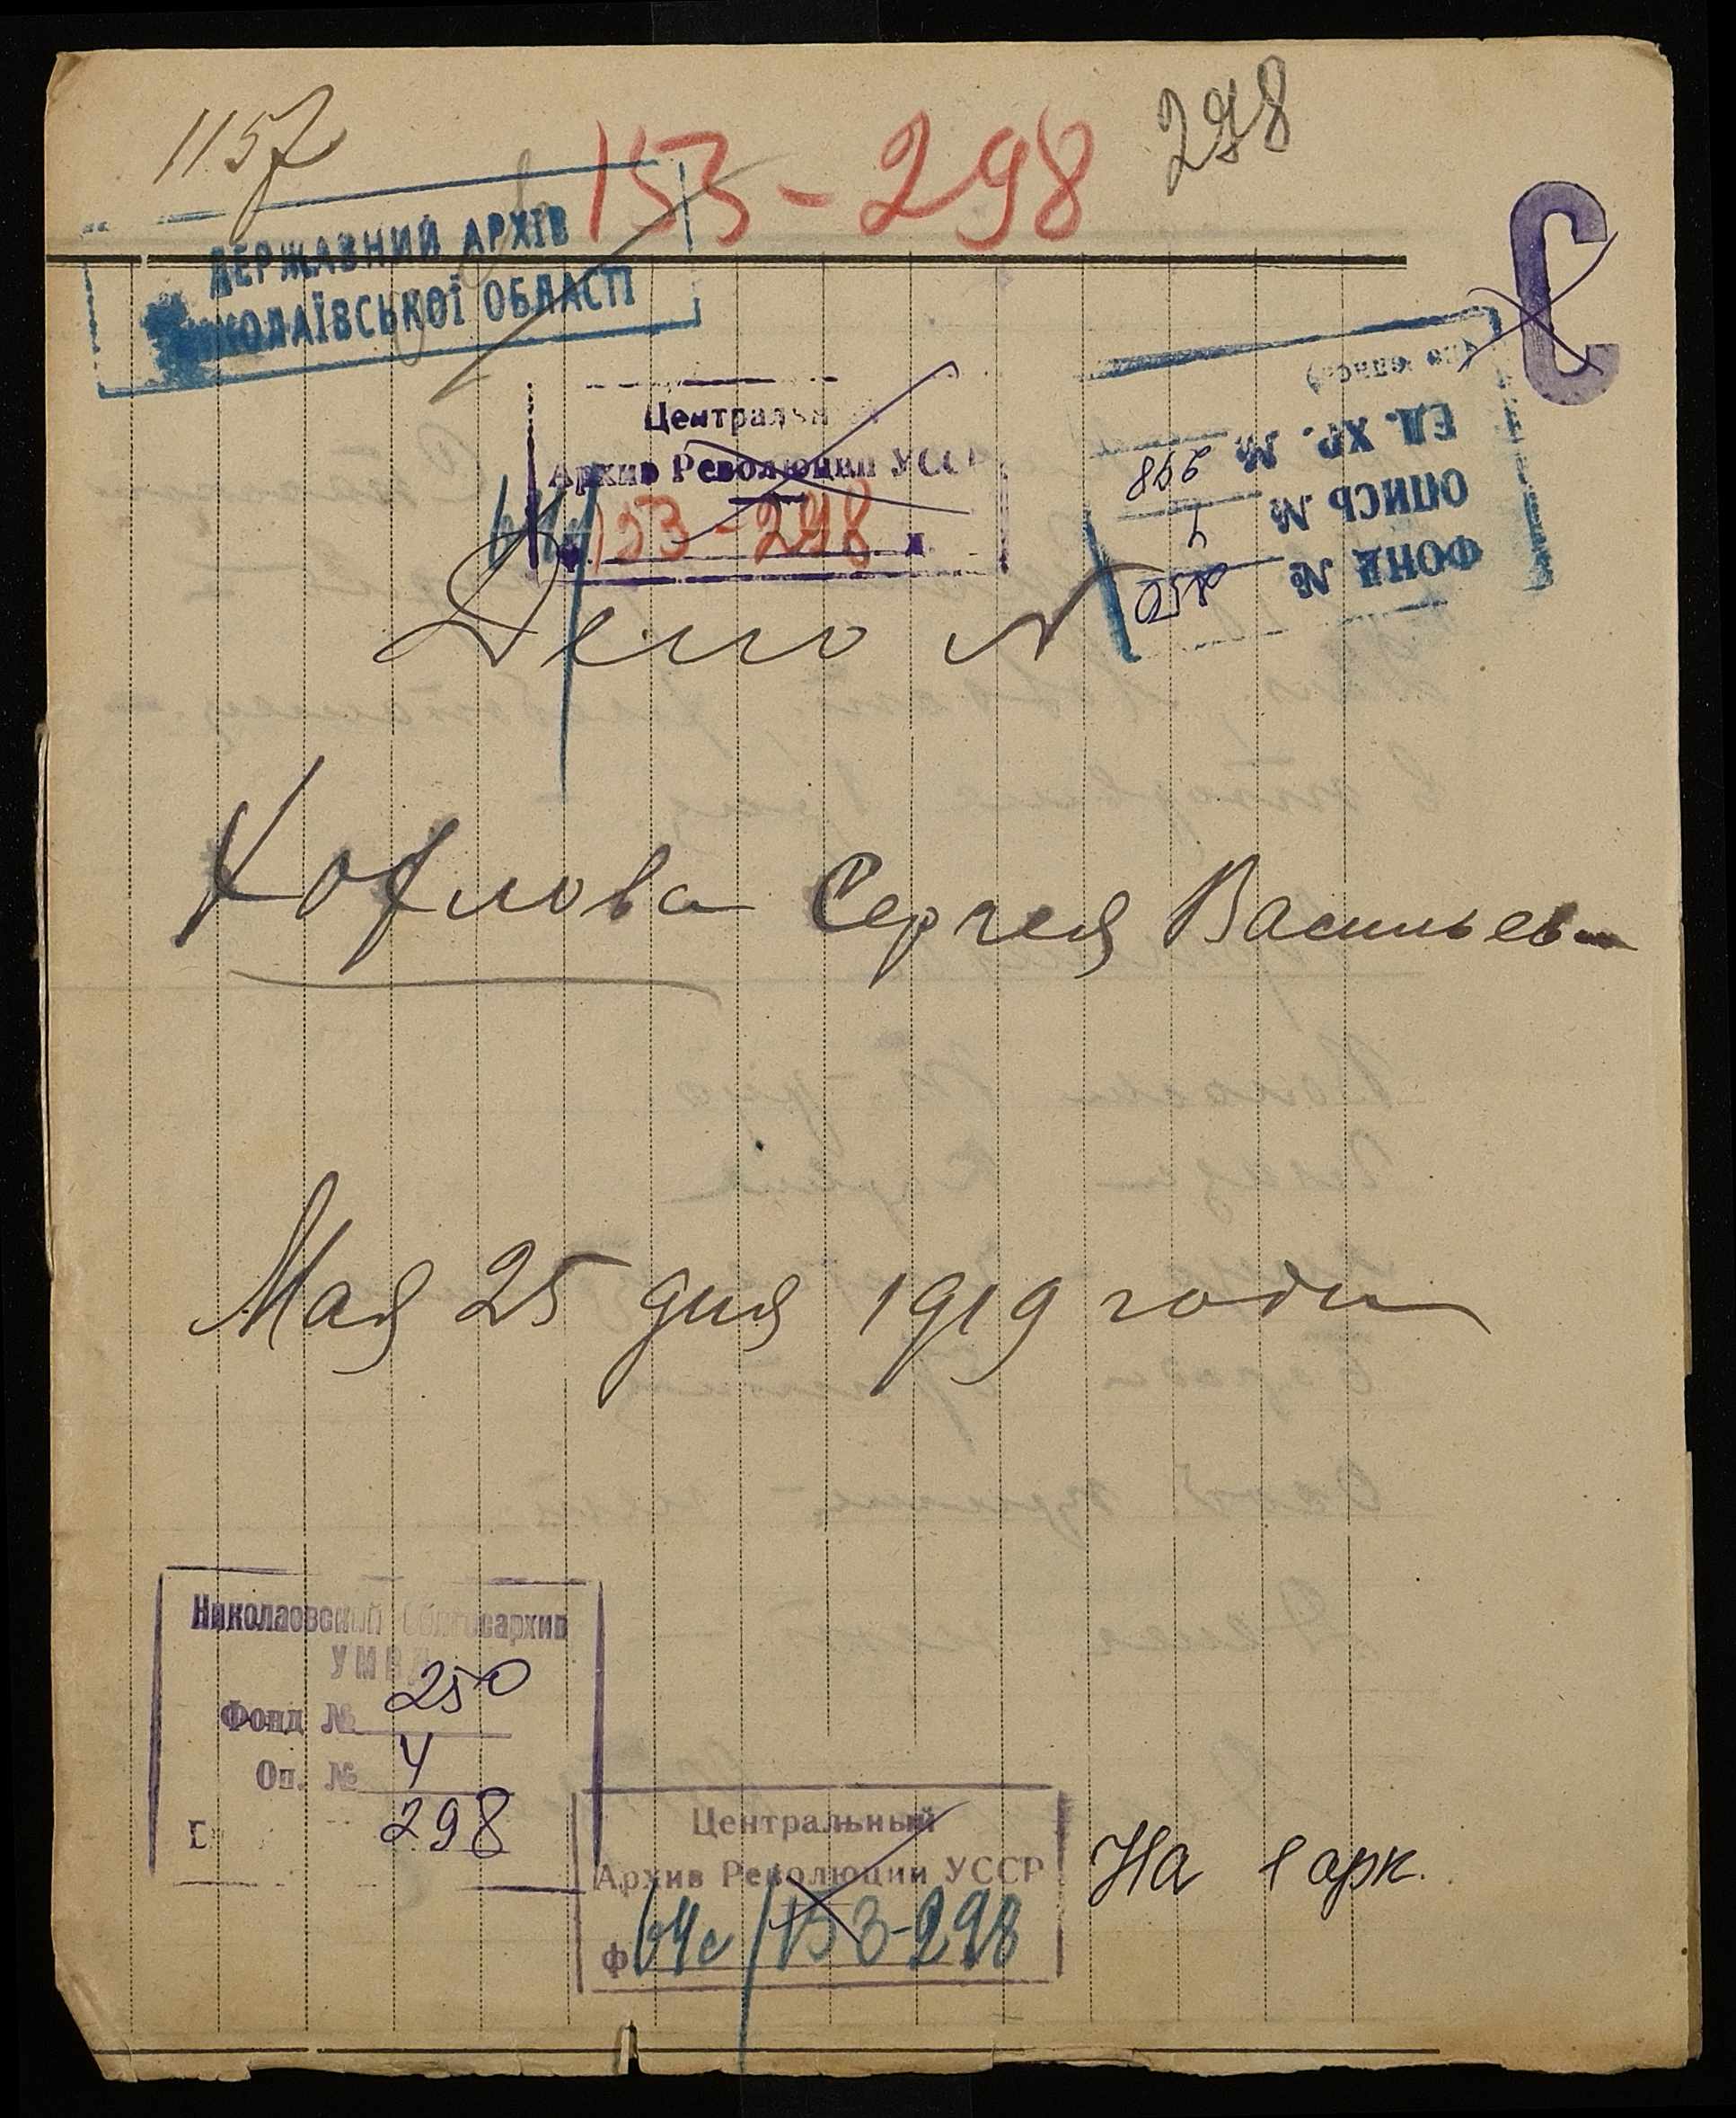 1157
153-298
298
С
ДЕРЖАВНИЙ АРХІВ
МИКОЛАЇВСЬКОЇ ОБЛАСТІ
Центральный
Архив Революции УССР
153-298
ФОНД № 250
ОПИСЬ № 4
ЕД. ХР. № 298
Дело №
Козлова Сергея Васильев
Мая 25 дня 1919 года
Николаевский Облгосархив
УМВД
Фонд № 250
Оп. № 4
298
Центральный
Архив Революции УССР
ф 64с/153-298
На 1 арк.